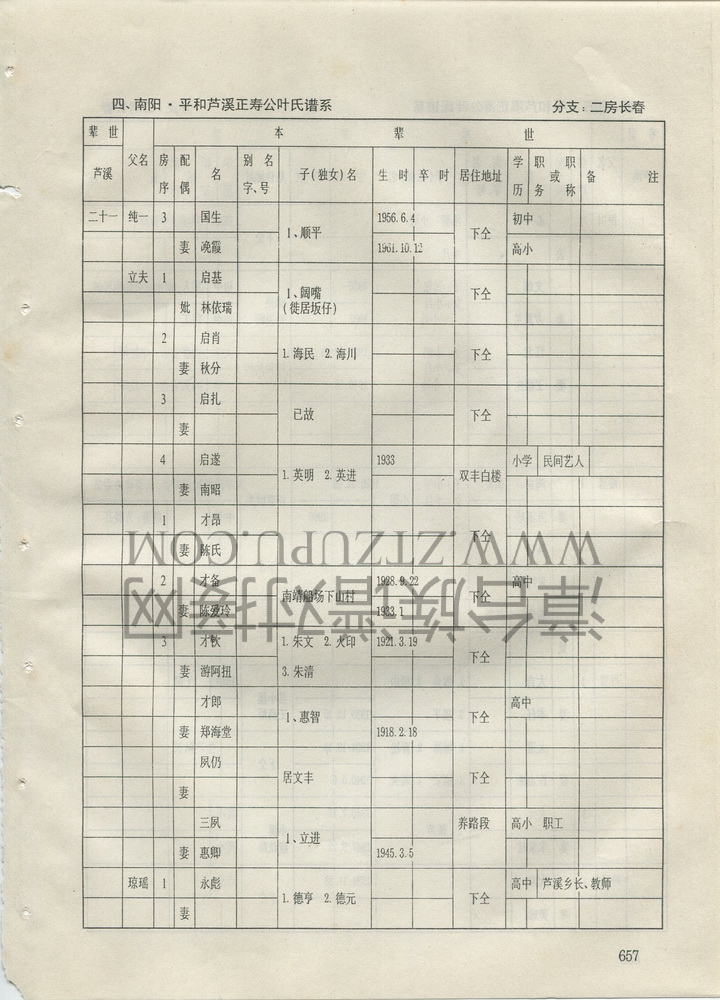 四、南阳·平和芦溪正寿公叶氏谱系 分支：二房长春
辈世 本 辈 世
芦溪 父名 房序 配偶 名 别名字、号 子(独女)名 生时 卒时 居住地址 学历 职务或职称 备注
二十一 纯一 3 国生 1、顺平 1956.6.4 下仝 初中
妻 晚霞 1961.10.12 高小
立夫 1 启基 1、阔嘴 下仝
妣 林依瑞 (徙居坂仔)
2 启肖 1.海民 2.海川 下仝
妻 秋分
3 启扎 已故 下仝
妻
4 启遂 1.英明 2.英进 1933 双丰白楼 小学 民间艺人
妻 南昭
1 才昂 下仝
妻 陈氏
2 才备 南靖船场下山村 1928.9.22 下仝 高中
妻 陈爱玲 1933.1
3 才秋 1.朱文 2.火印 1921.3.19 下仝
妻 游阿扭 3.朱清
才郎 1、惠智 下仝 高中
妻 郑海堂 1918.2.18
夙仍 居文丰 下仝
妻
三夙 1、立进 养路段 高小 职工
妻 惠卿 1945.3.5
琼瑶 1 永彪 1.德亨 2.德元 下仝 高中 芦溪乡长、教师
妻
657
WWW.ZTZUPU.COM
漳台族谱对接网